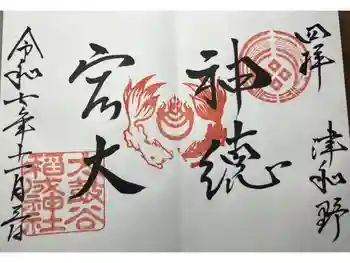 四拝
津和野
神徳
宏大
令和六年十二月
太皷谷
稲成神社